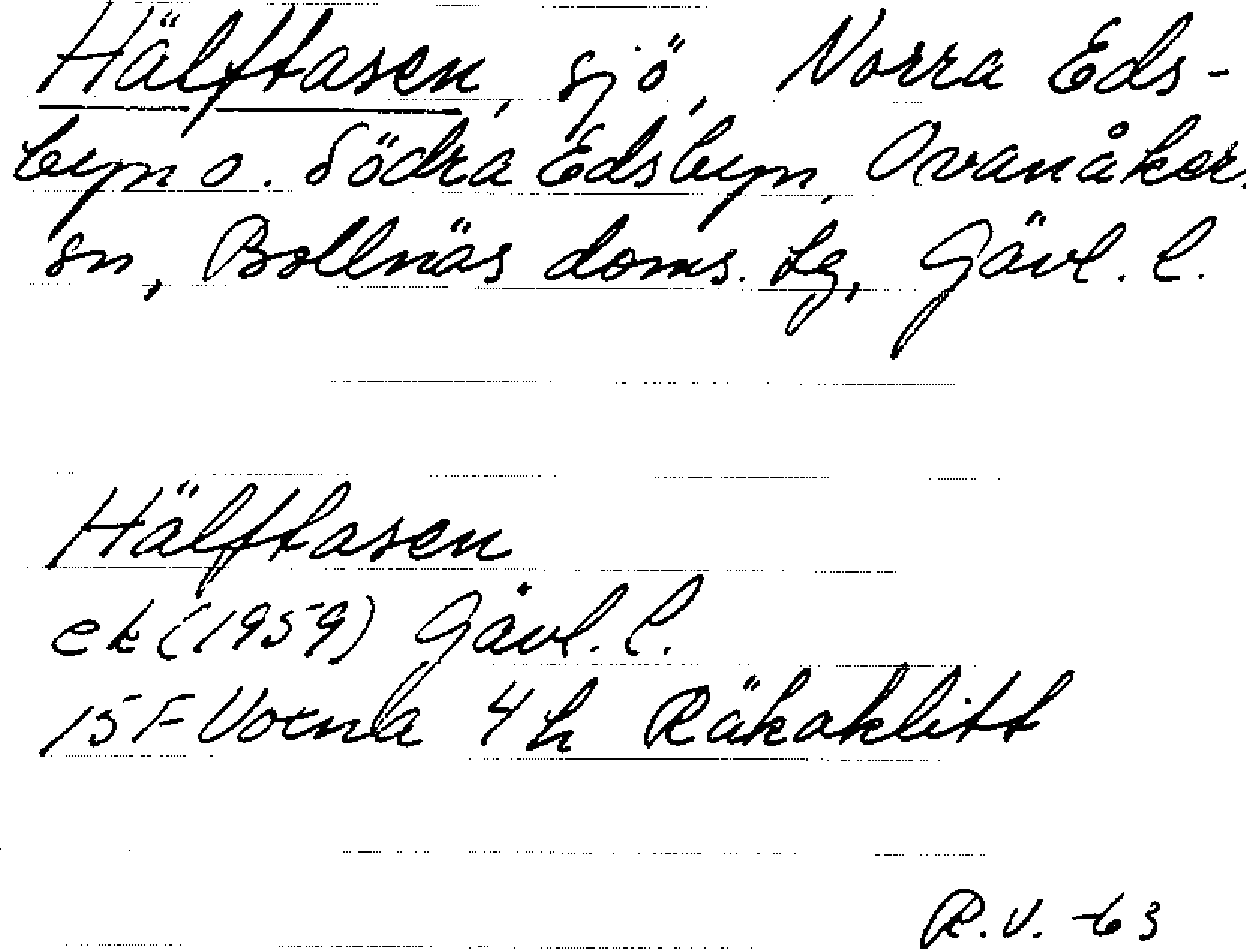 Hälftasen, sjö, Norra Eds-
byn o. Södra Edsbyn, Ovanåkers
sn, Bollnäs doms. tg, Gävl. l.
Hälftasen
ek (1959) Gävl. l.
15 F Voxna 4 h Räkaklitt
R.V. -63